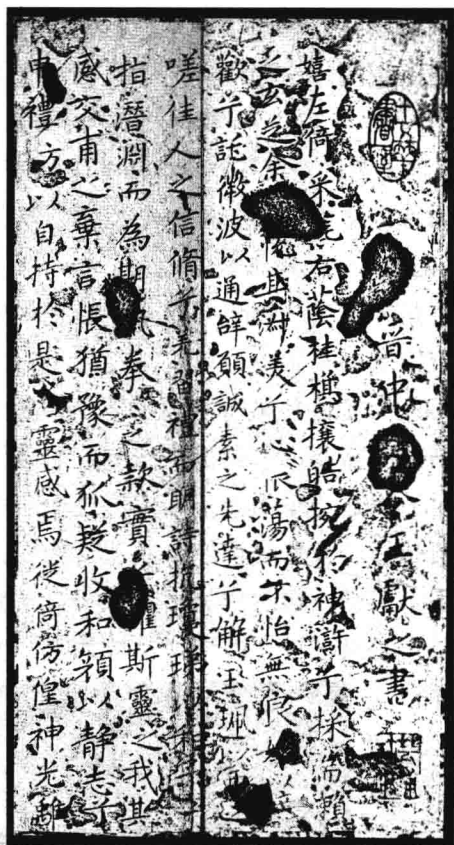 晉中王獻之書
嬉左倚采旄右蔭桂旗攘皓捥於神滸兮採湍瀨
之玄芝余悅其淑美兮心振蕩而不怡無良以
歡兮託微波以通辭願誠素之先達兮解玉珮之
嗟佳人之信脩兮羌習禮而明詩抗瓊珶和予
指潛淵而為期執拳之款實懼斯靈之我其
感交甫之棄言悵猶豫而狐疑收和顏以静志兮
申禮方以自持於是靈感焉徙倚仿偟神光離